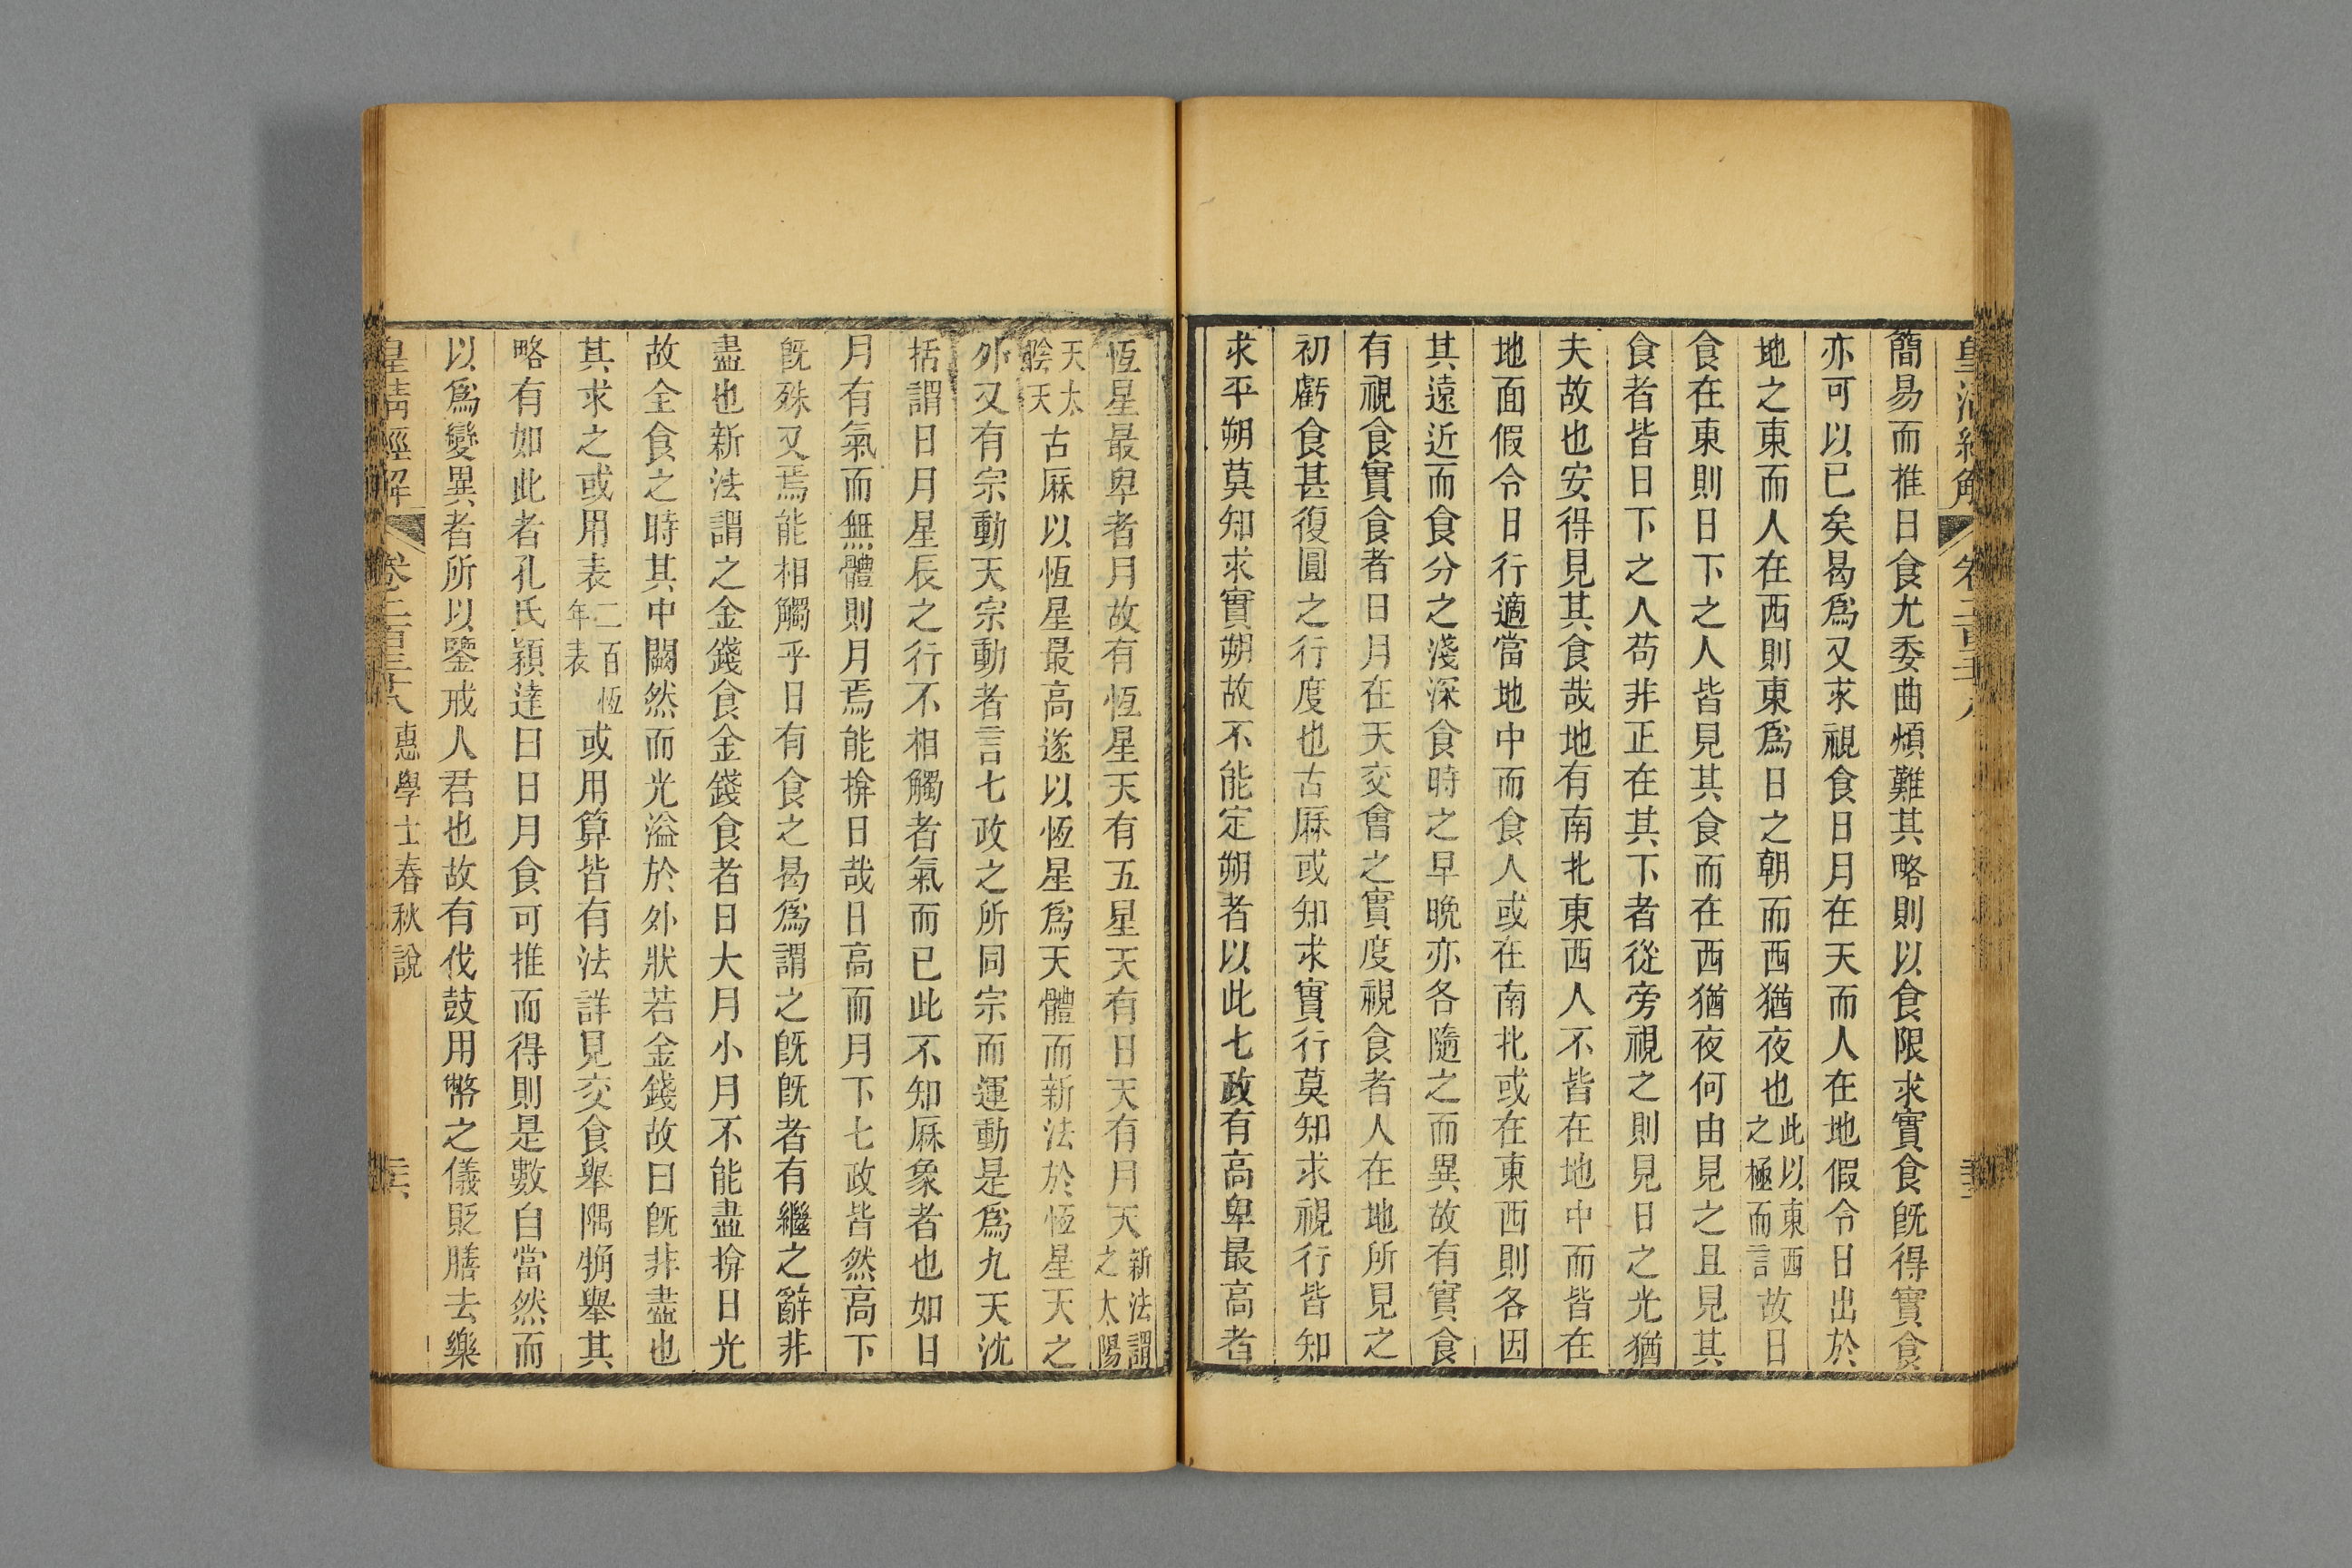 簡易而推日食尤委曲煩難其略則以食限求實食旣得實食
亦可以已矣曷爲又求視食日月在天而人在地假令日出於
地之東而人在西則東爲日之朝而西猶夜也此以東西之極而言故日
食在東則日下之人皆見其食而在西猶夜何由見之且見其
食者皆日下之人苟非正在其下者從旁視之則見日之光猶
夫故也安得見其食哉地有南北東西人不皆在地中而皆在
地面假令日行適當地中而食人或在南北或在東西則各因
其遠近而食分之淺深食時之早晚亦各隨之而異故有實食
有視食實食者日月在天交會之實度視食者人在地所見之
初虧食甚復圓之行度也古厤或知求實行莫知求視行皆知
求平朔莫知求實朔故不能定朔者以此七政有高卑最高者
恆星最卑者月故有恆星天有五星天有日天有月天新法謂之太陽
天太陰天古厤以恆星最高遂以恆星爲天體而新法於恆星天之
外又有宗動天宗動者言七政之所同宗而運動是爲九天沈
括謂日月星辰之行不相觸者氣而已此不知厤象者也如日
月有氣而無體則月焉能揜日哉日高而月下七政皆然高下
旣殊又焉能相觸乎日有食之曷爲謂之旣旣者有繼之辭非
盡也新法謂之金錢食金錢食者日大月小月不能盡揜日光
故全食之時其中闕然而光溢於外狀若金錢故曰旣非盡也
其求之或用表二百恆年表或用算皆有法詳見交食舉隅觕舉其
略有如此者孔氏穎達曰日月食可推而得則是數自當然而
以爲變異者所以鑒戒人君也故有伐鼓用幣之儀貶膳去樂
皇淸經解 卷二百三十八 惠學士春秋說